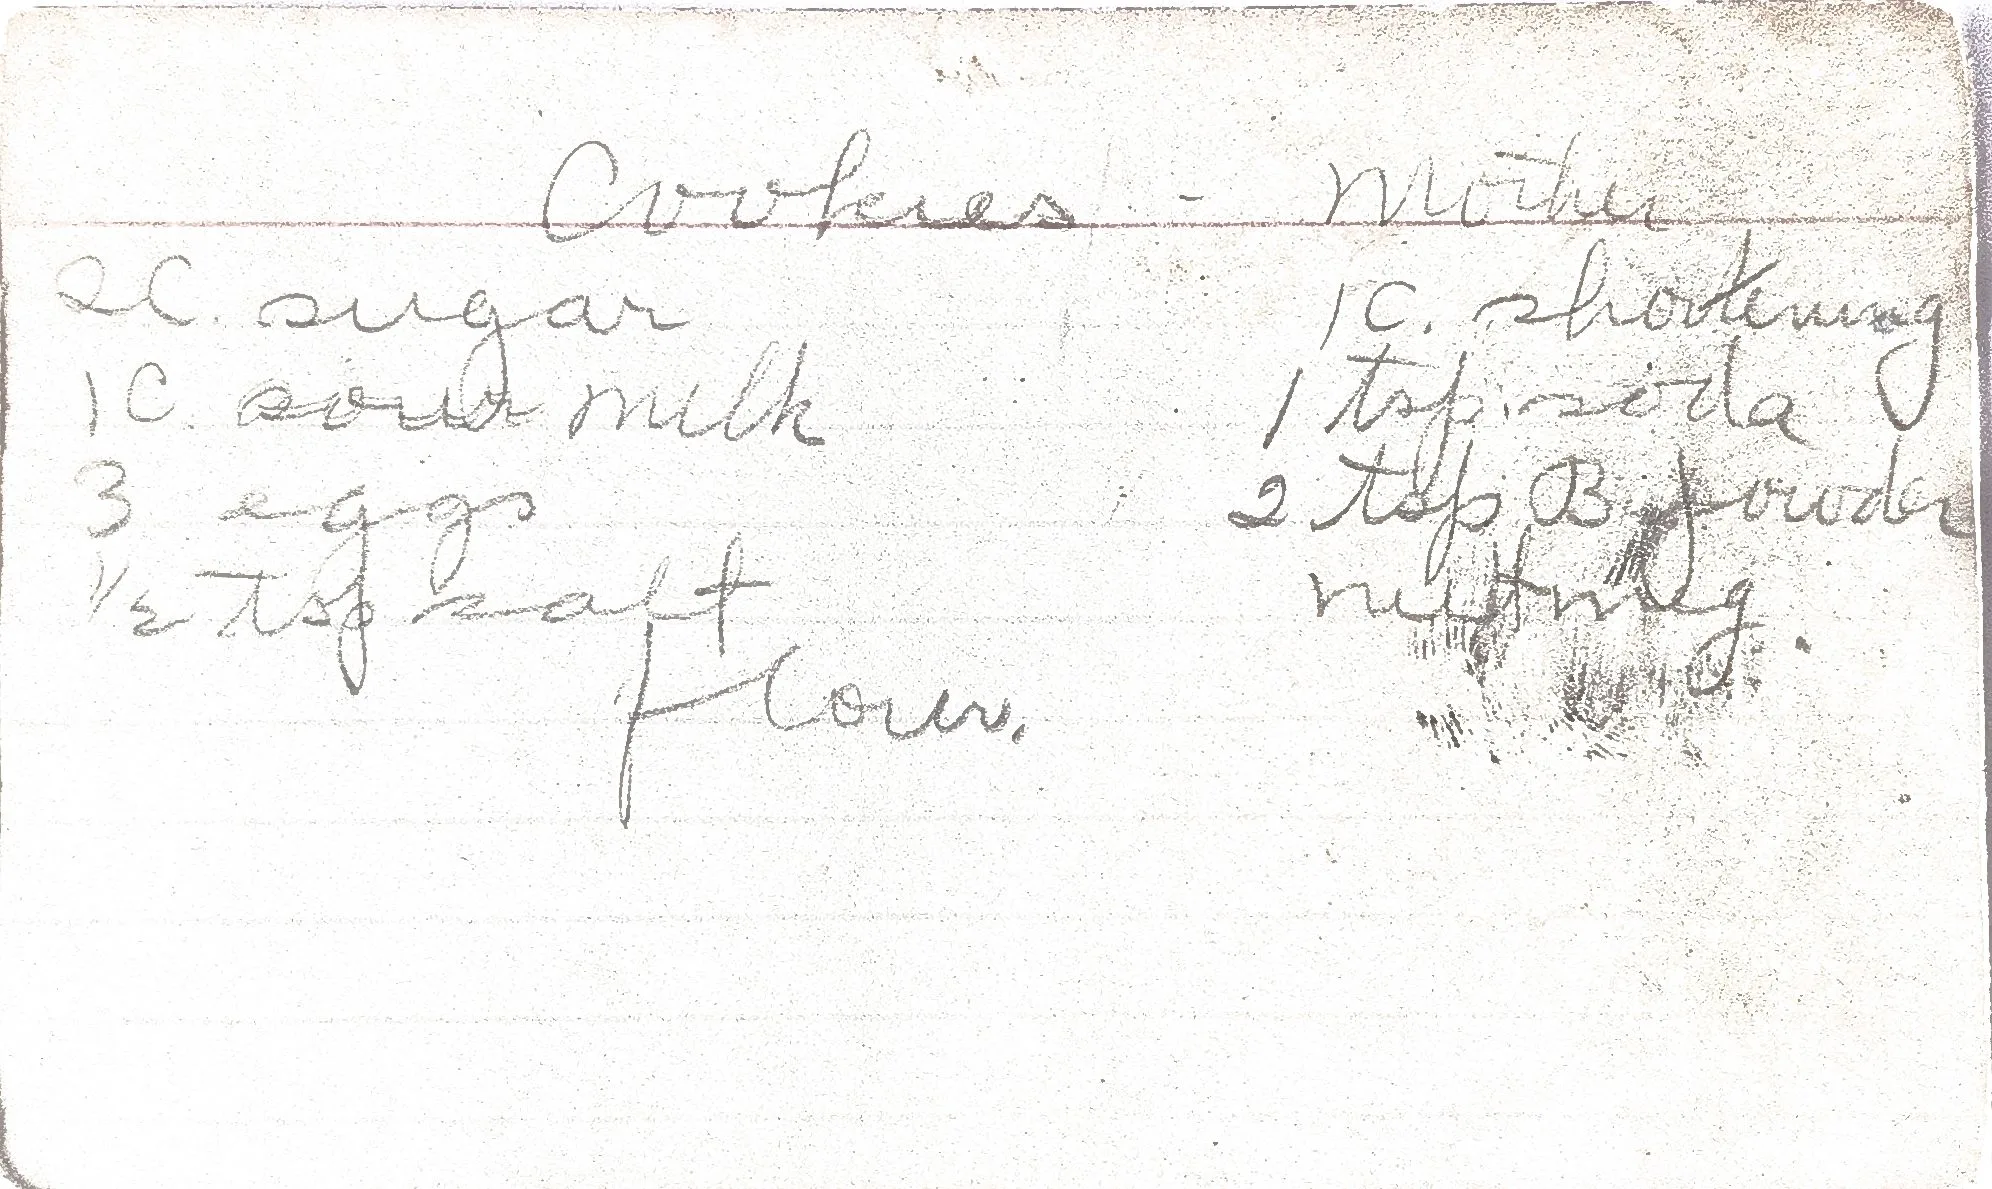 Cookies - Mother
2 C. sugar
1 C. shortening
1 C. sour milk
1 tsp. soda
3 eggs
2 tsp B powder
1/2 tsp salt
nutmeg.
flour.